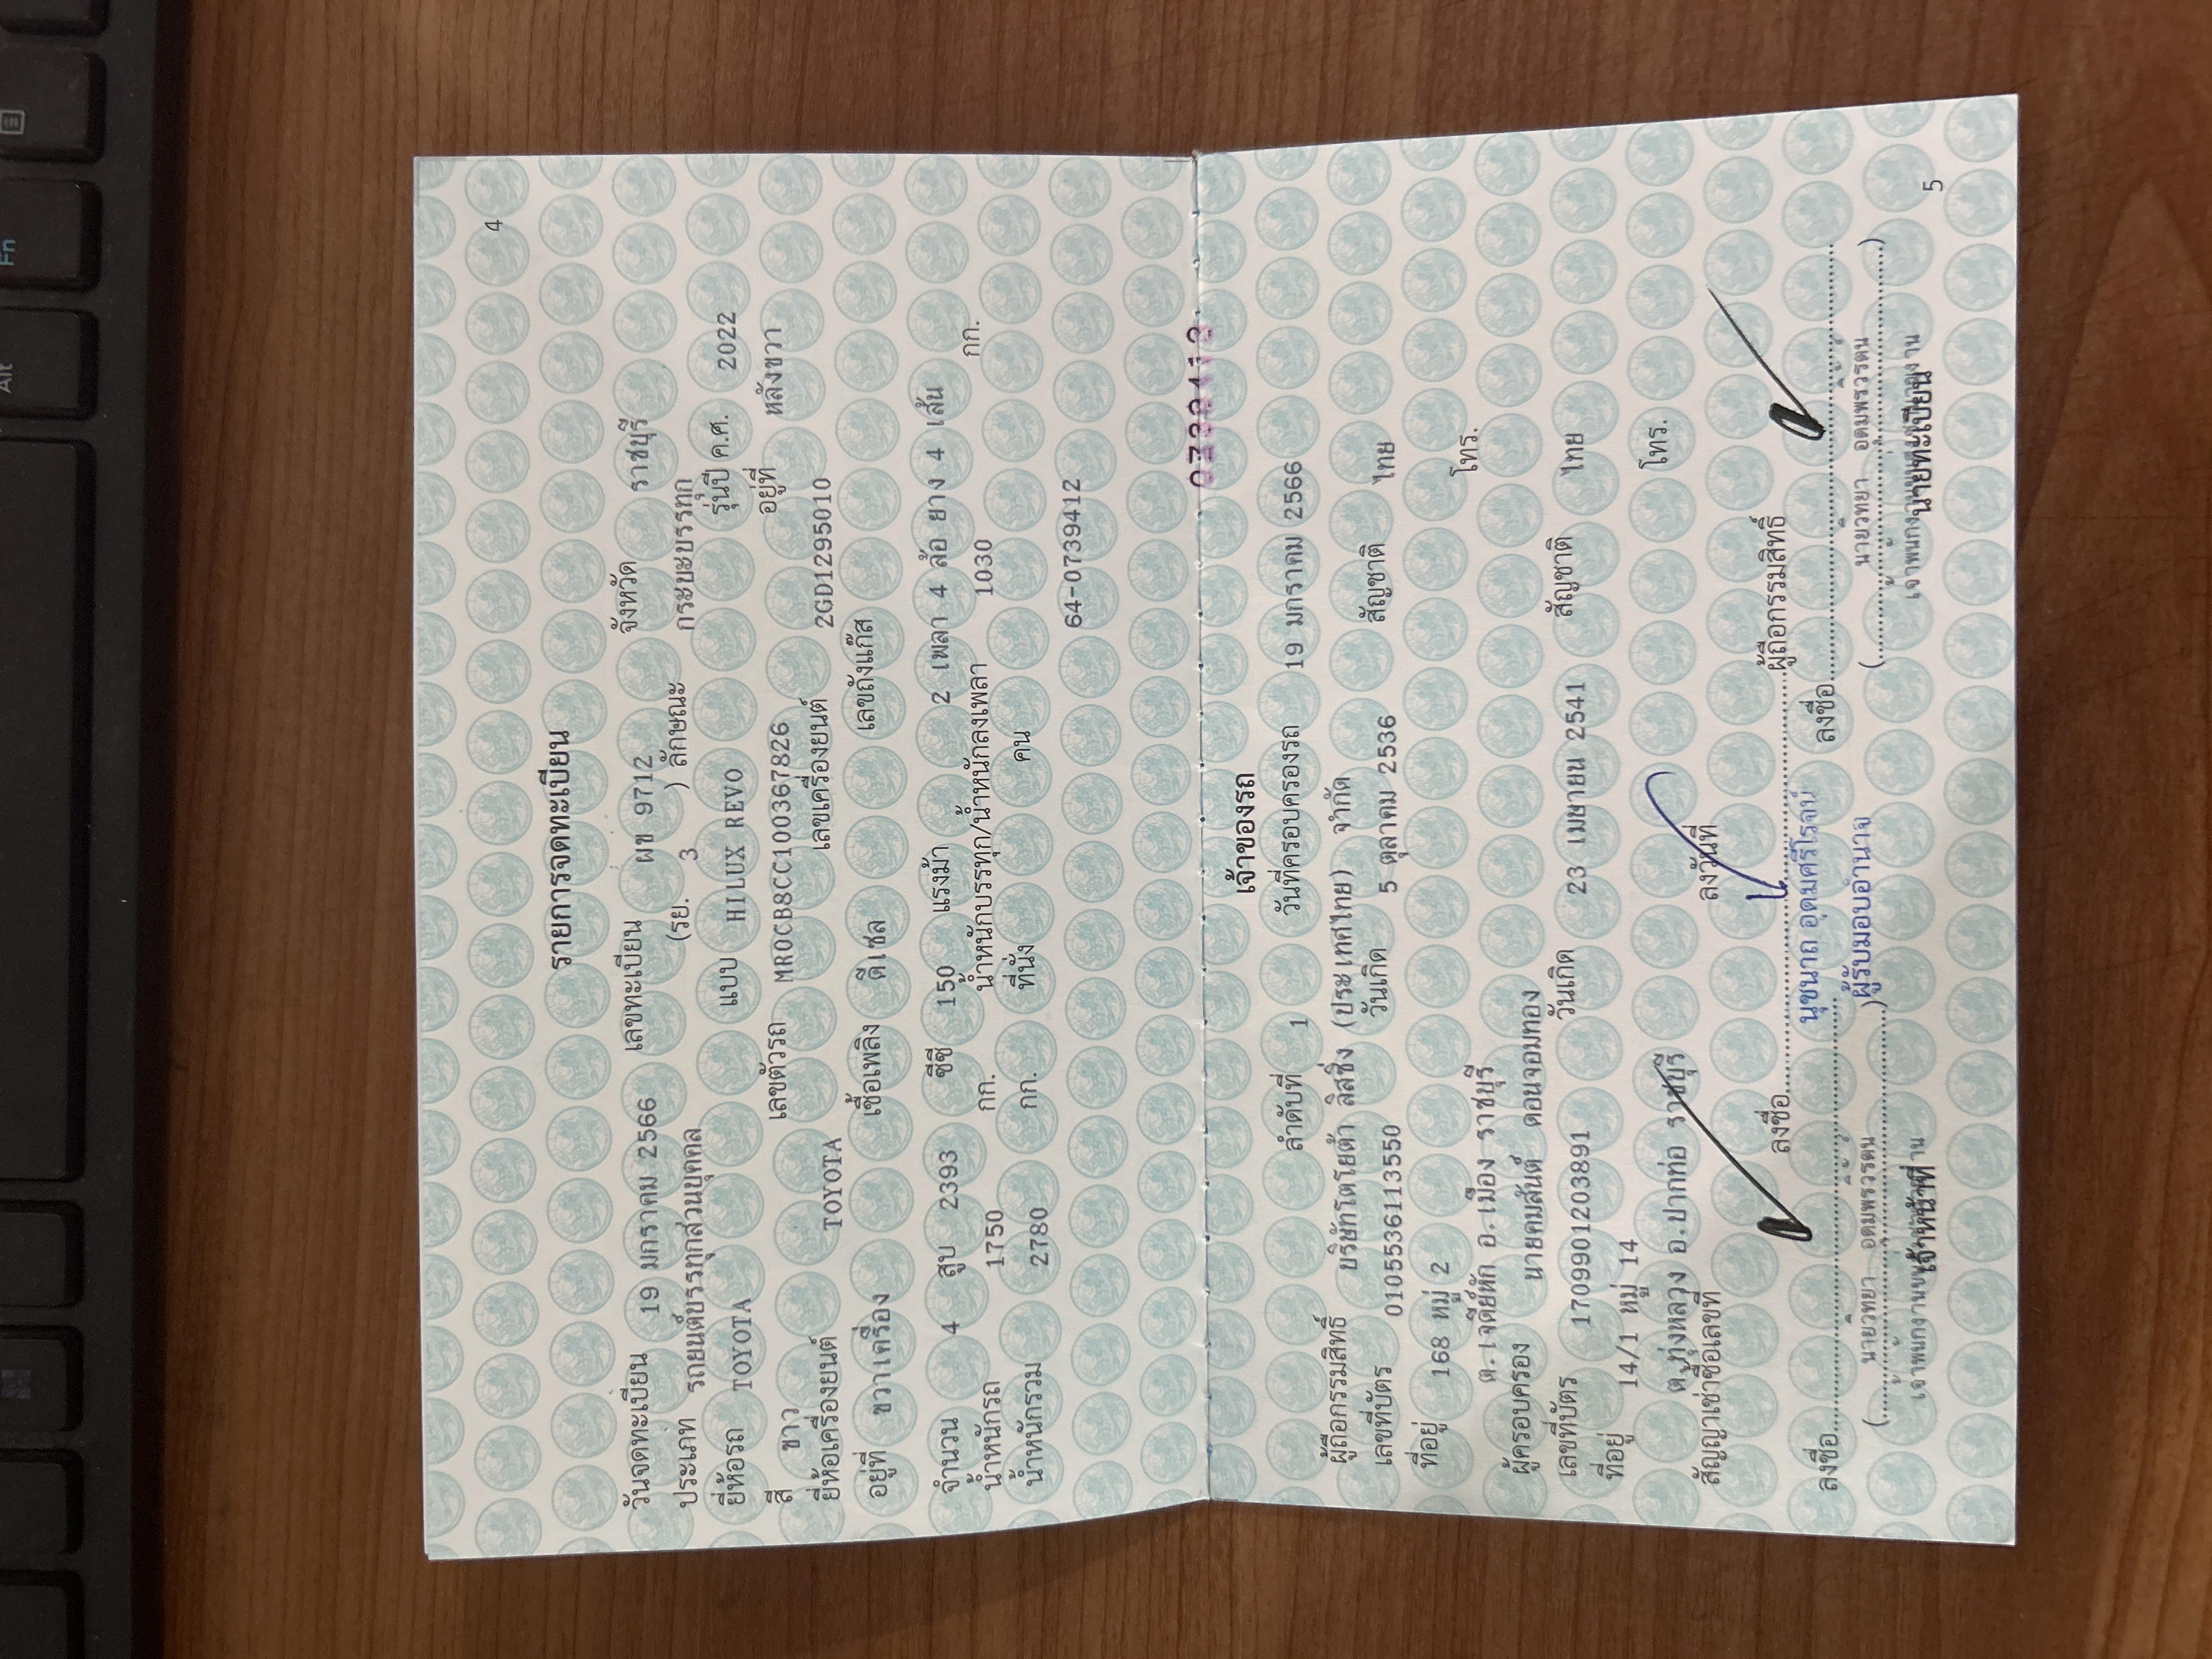 4
รายการจดทะเบียน
วันจดทะเบียน 19 มกราคม 2566 เลขทะเบียน ผข 9712 จังหวัด ราชบุรี
ประเภท รถยนต์บรรทุกส่วนบุคคล (รย. 3 ) ลักษณะ กระบะบรรทุก
ยี่ห้อรถ TOYOTA แบบ HILUX REVO รุ่นปี ค.ศ. 2022
สี ขาว เลขตัวรถ MR0CB8CC100367826 อยู่ที่ หลังขวา
ยี่ห้อเครื่องยนต์ TOYOTA เลขเครื่องยนต์ 2GD1295010
อยู่ที่ ขวาเครื่อง เชื้อเพลิง ดีเซล เลขถังแก๊ส
จำนวน 4 สูบ 2393 ซีซี 150 แรงม้า 2 เพลา 4 ล้อ ยาง 4 เส้น
น้ำหนักรถ 1750 กก. น้ำหนักบรรทุก/น้ำหนักลงเพลา 1030 กก.
น้ำหนักรวม 2780 กก. ที่นั่ง คน
64-0739412
เจ้าของรถ
ลำดับที่ 1 วันที่ครอบครองรถ 19 มกราคม 2566
ผู้ถือกรรมสิทธิ์ บริษัทโตโยต้า ลิสซิ่ง (ประเทศไทย) จำกัด
เลขที่บัตร 0105536113550 วันเกิด 5 ตุลาคม 2536 สัญชาติ ไทย
ที่อยู่ 168 หมู่ 2
ต.เจดีย์หัก อ.เมือง ราชบุรี โทร.
ผู้ครอบครอง นายคมสันต์ ดอนจอมทอง
เลขที่บัตร 1709901203891 วันเกิด 23 เมษายน 2541 สัญชาติ ไทย
ที่อยู่ 14/1 หมู่ 14
ต.ทุ่งหลวง อ.ปากท่อ ราชบุรี โทร.
สัญญาเช่าซื้อเลขที่ ลงวันที่
ลงชื่อ ผู้ถือกรรมสิทธิ์
นุชนาถ อุดมศรีโรจน์
ลงชื่อ ลงชื่อ
ผู้รับมอบอำนาจ
(นายวิทยา อุดมพรวรัตน์) (นายวิทยา อุดมพรวรัตน์)
เจ้าหน้าที่ นายทะเบียน
5